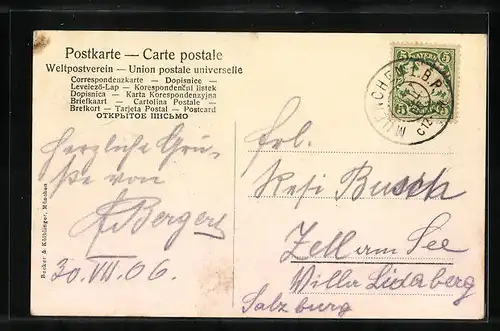 Postkarte — Carte postale
Weltpostverein — Union postale universelle
Correspondenzkarte — Dopisnice —
Levelező-Lap — Korespondenční lístek
Dopisnica — Karta Korespondenzyjna
Briefkaart — Cartolina Postale —
Brefkort — Tarjeta Postal — Postcard
ОТКРЫТОЕ ПИСЬМО
5 BAYERN 5
MUENCHEN I. B.P.
Herzliche Grü-
ße von
Berger
30. VII. 06.
Becker & Kölblinger, München
Frl.
Resi Busch
Zell am See
Villa Lidaberg
Salzburg